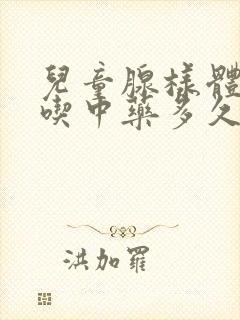 兒童腺樣體
喫中藥多久
洪加羅